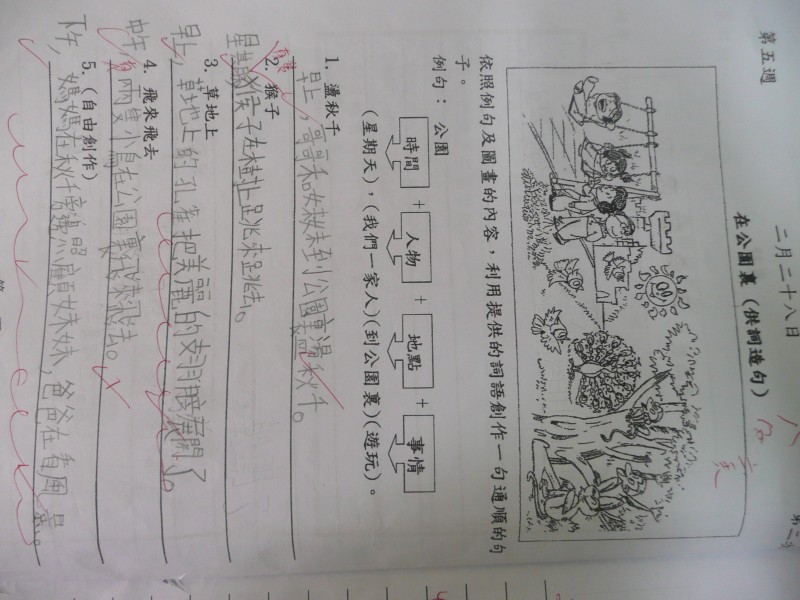 二月二十八日
第五週
在公園裏（供詞造句）
依照例句及圖畫的內容，利用提供的詞語創作一句通順的句
子。
例句： 公園
時間 + 人物 + 地點 + 事情
（星期天），（我們一家人）（到公園裏）（遊玩）。
1. 盪秋千
早上，哥哥和妹妹到公園裏盪秋千。
2. 猴子
猴子在樹上跳來跳去。
3. 草地上
早上，草地上的孔雀把美麗的羽膀展開了。
4. 飛來飛去
中午，有兩隻小鳥在公園裏飛來飛去。
5. （自由創作）
下午，媽媽在秋千旁邊照顧妹妹，爸爸在看